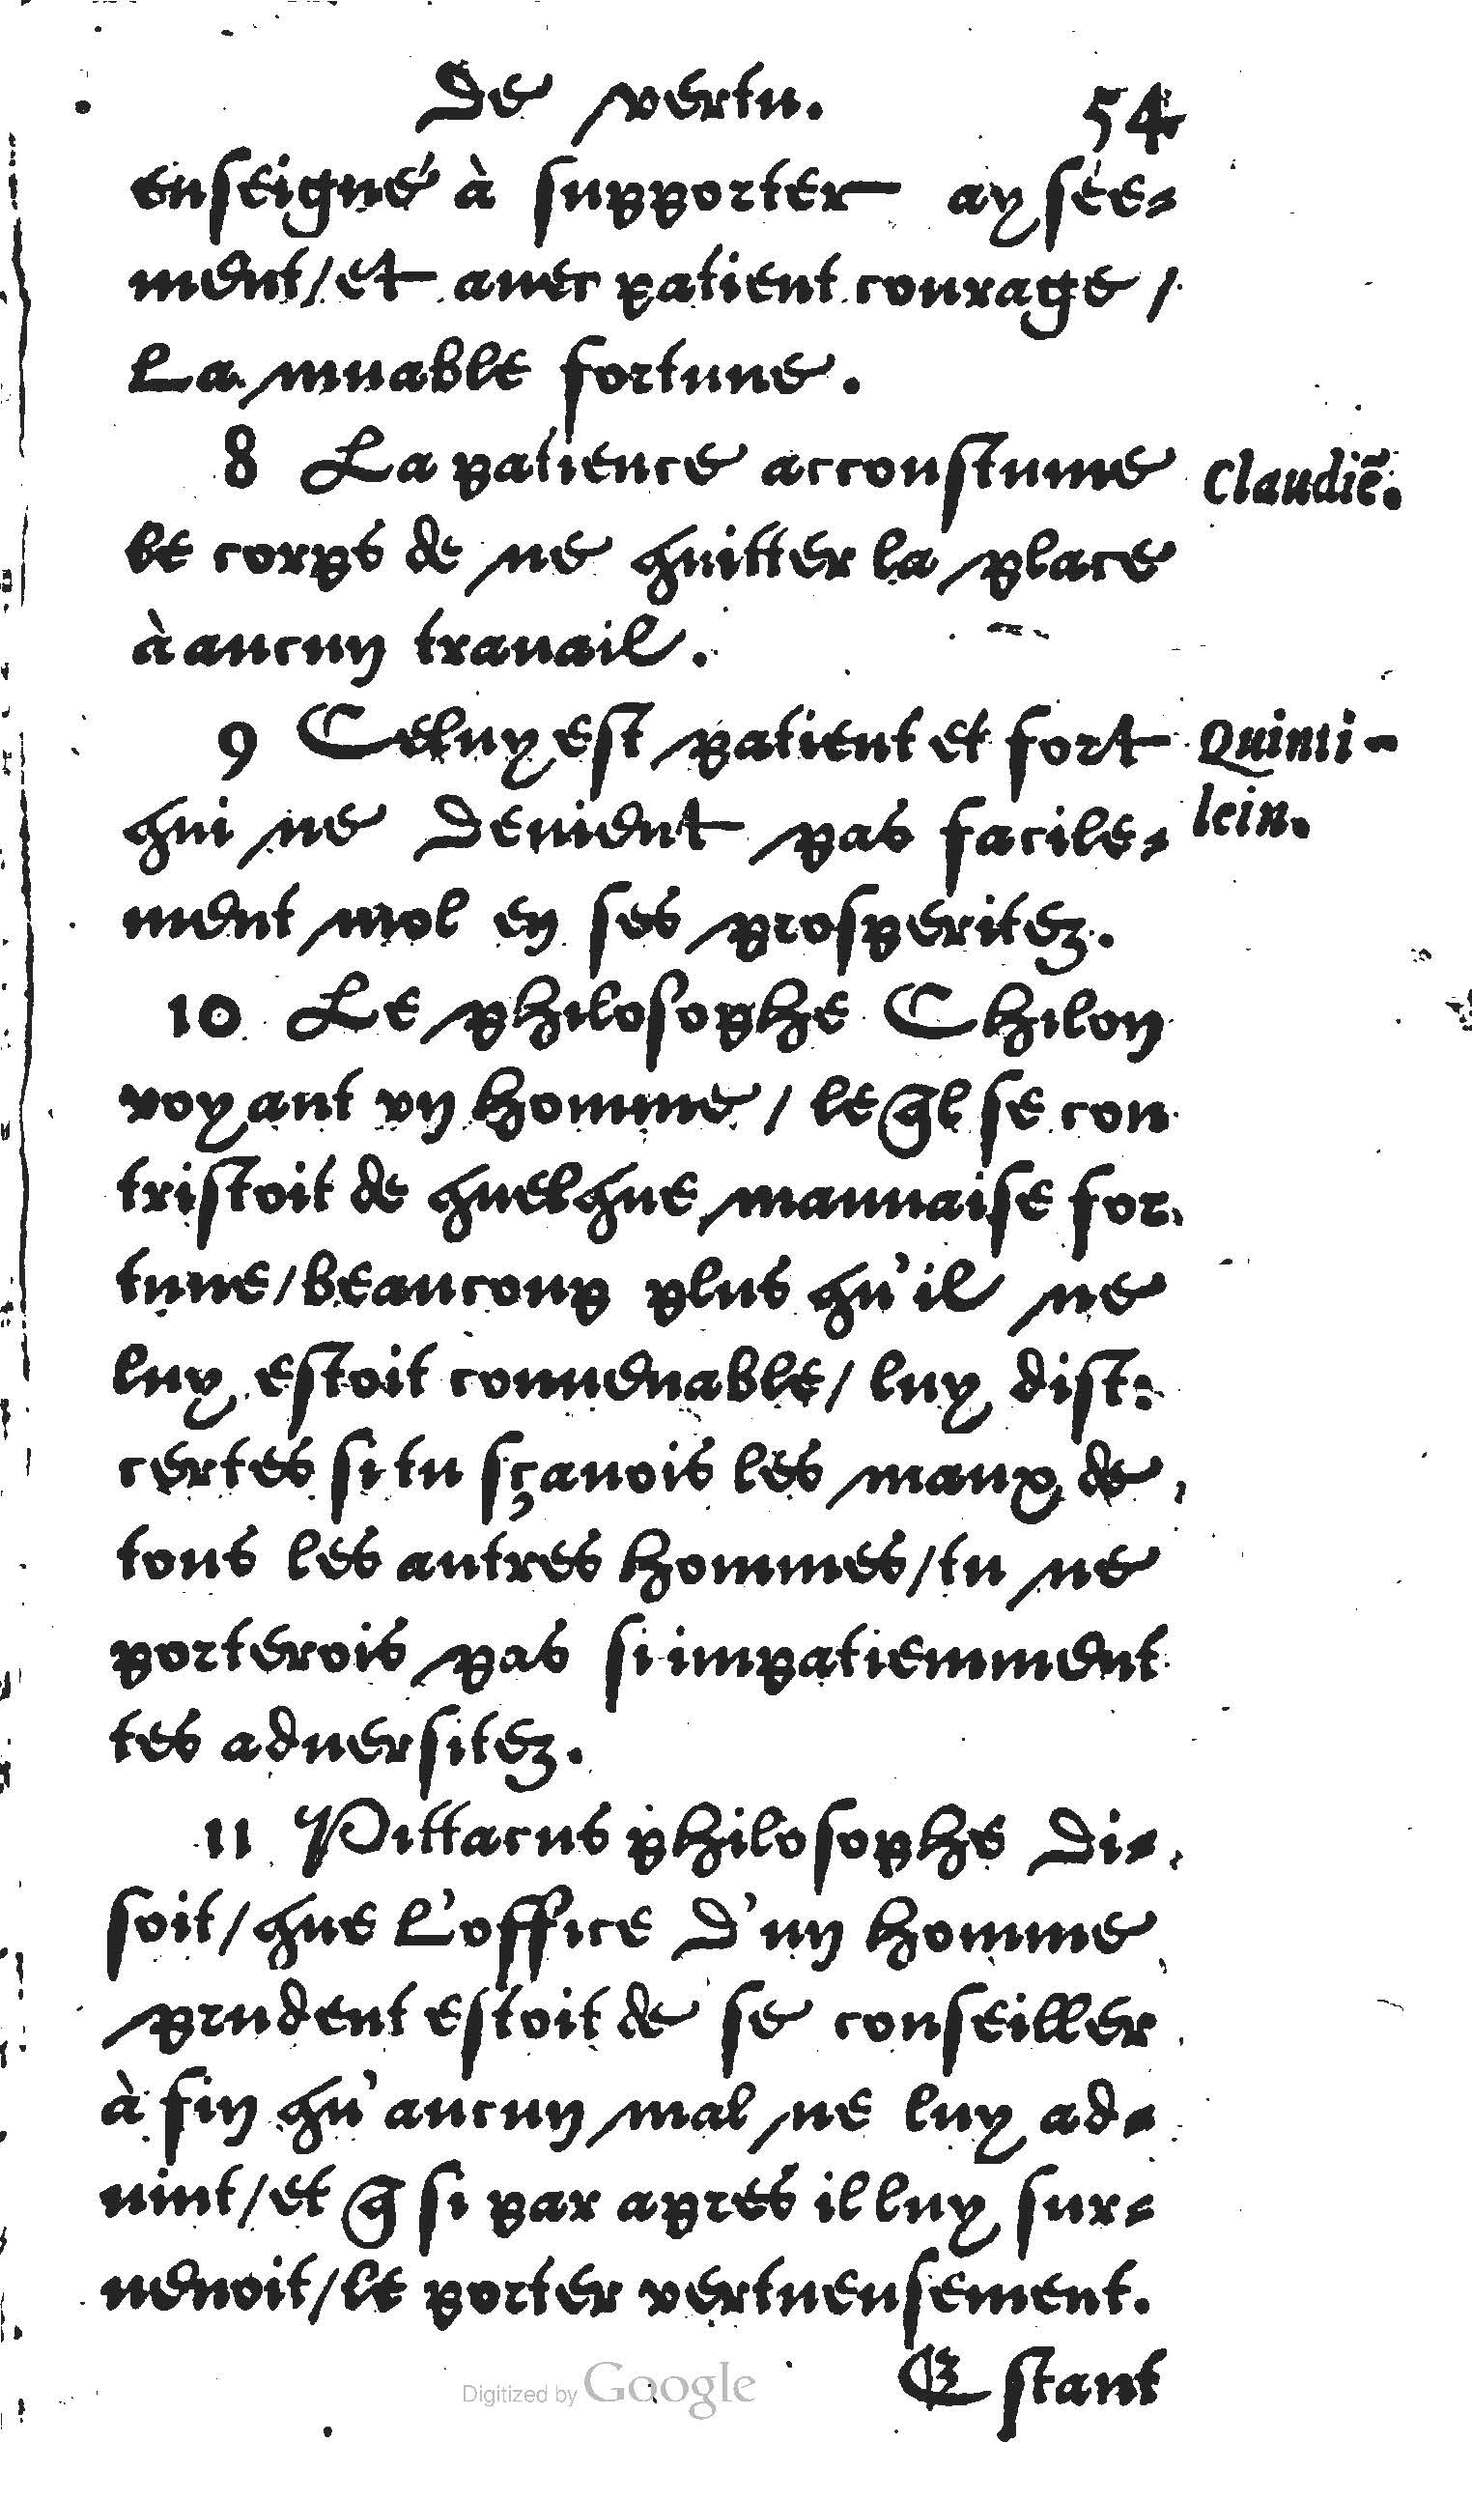 De vertu. 54
enseigné à supporter aysée-
ment/et auec patient courage/
La muable fortune.
8 La patience accoustume
le corps de ne quitter la place
à aucun trauail.
Claudiē.
9 Celuy est patient et fort
qui ne deuient pas facile-
ment mol en ses prosperitez.
Quinti-
lein.
10 Le philosophe Chilon
voyant vn homme/ le q̃l se con
tristoit de quelque mauuaise for
tune/beaucoup plus qu'il ne
luy estoit conuenable/ luy dist:
certes si tu sçauois les maux de
tous les autres hommes/tu ne
porterois pas si impatiemment
tes aduersitez.
11 Pittacus philosophe di-
soit/que l'office d'un homme
prudent estoit de se conseiller
à fin qu'aucun mal ne luy ad-
uint/et q̃ si par apres il luy sur-
uenoit/le porter vertueusement.
Estant
Digitized by Google